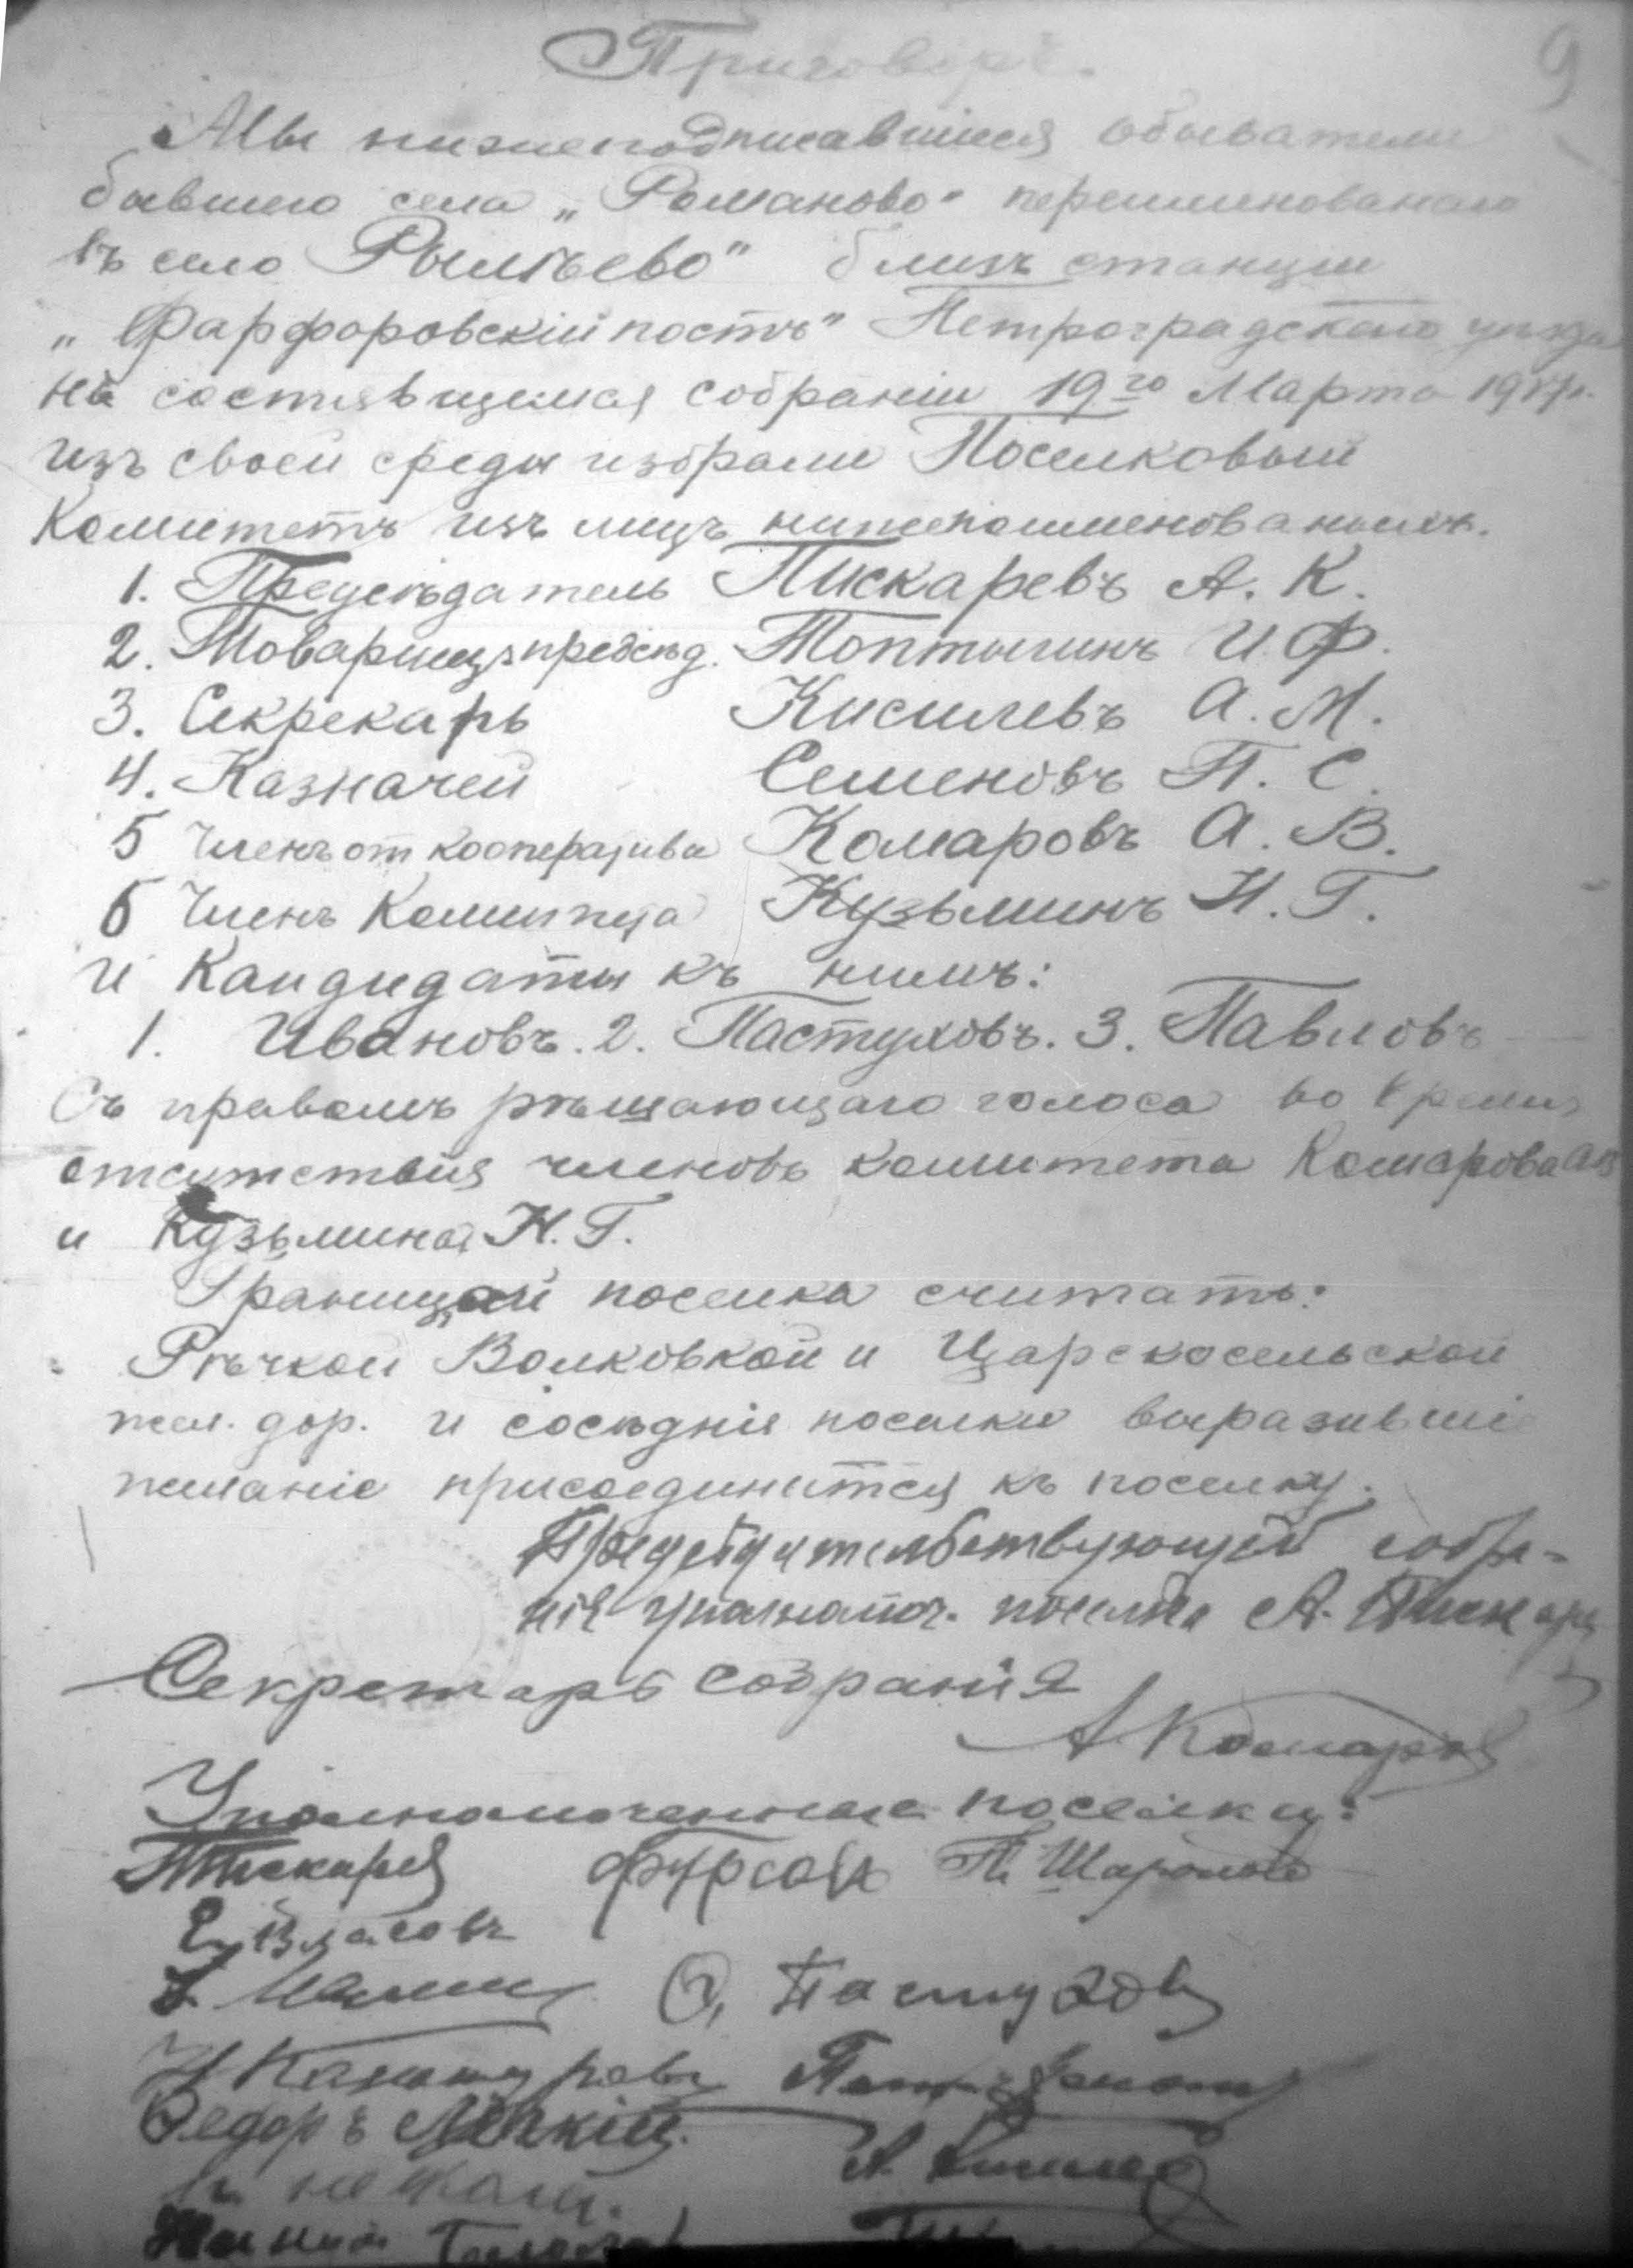 Приговоръ.
9
Мы нижеподписавшіеся обыватели
бывшего села „Романово" переименованаго
въ село Рылѣево" близъ станціи
„Фарфоровскій постъ" Петроградскаго уѣзда
на состоявщемся собраніи 19го Марта 1917г.
изъ своей среды избрали Поселковый
Комитетъ изъ лицъ нижепоименованыхъ.
1. Предсѣдатель Пискаревъ А. К.
2. Товарищъ предсѣд. Топтыгинъ И. Ф.
3. Секрекарь Кисилевъ А. М.
4. Казначей Семеновъ П. С.
5 Членъ от кооператива Комаровъ А. В.
6 Членъ Комитета Кузьминъ Н. Г.
и Кандидаты къ нимъ:
1. Ивановъ. 2. Пастуховъ. 3. Павловъ
Съ правомъ рѣшающаго голоса во время
отсутствія членовъ комитета Комарова АВ
и Кузьмина Н. Г.
Границей поселка считать:
Рѣчкой Волковкой и Царскосельской
жел. дор. и сосѣднія поселки выразившіе
желаніе присоединится къ поселку.
Предсѣдательствующій собра-
нія уполномоч. поселка А. Пискарев
Секретарь собранія
А Комаров
Уполномоченные поселка:
Пискарев Фурсов П. Шаронов
Е. Власовъ
Пастухов
Федоръ